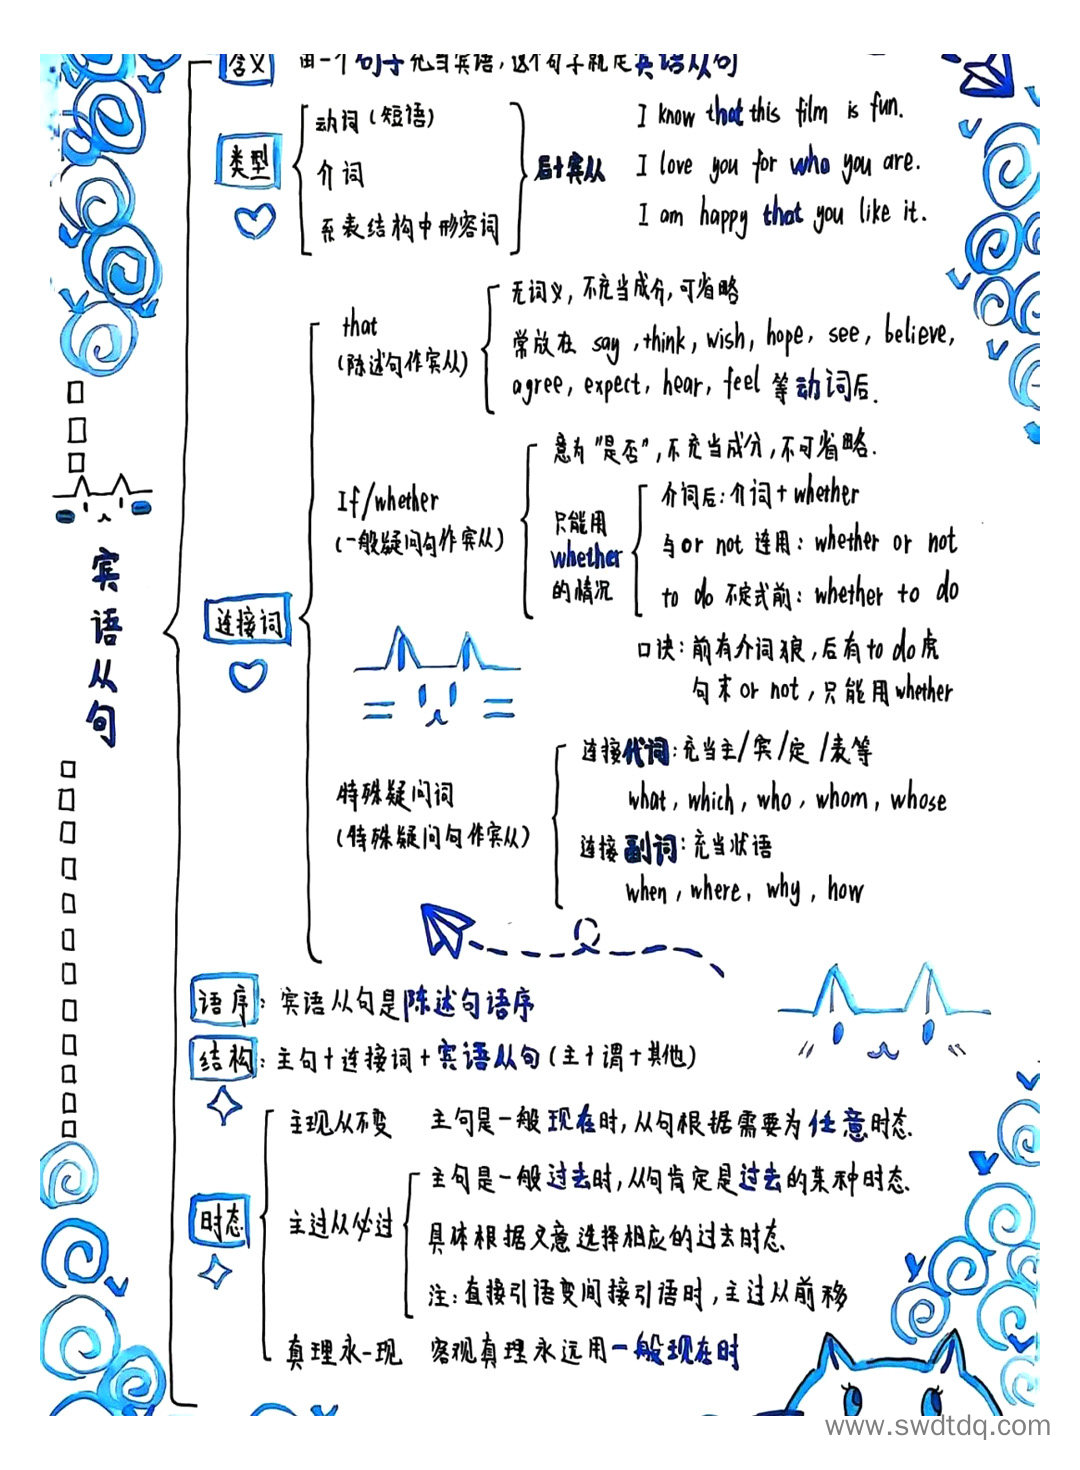 含义 由一个句子充当宾语，这个句子就是宾语从句
类型
动词（短语）
介词
系表结构中形容词
后+宾从
I know that this film is fun.
I love you for who you are.
I am happy that you like it.
宾语从句
连接词
that
(陈述句作宾从)
无词义，不充当成分，可省略
常放在 say，think，wish，hope，see，believe，
agree，expect，hear，feel 等动词后.
If/whether
(一般疑问句作宾从)
意为“是否”，不充当成分，不可省略.
只能用
whether
的情况
介词后：介词+whether
与or not 连用：whether or not
to do 不定式前：whether to do
口诀：前有介词狼，后有to do虎
句末or not，只能用whether
特殊疑问词
(特殊疑问句作宾从)
连接代词：充当主/宾/定/表等
what，which，who，whom，whose
连接副词：充当状语
when，where，why，how
语序：宾语从句是陈述句语序
结构：主句+连接词+宾语从句(主+谓+其他)
时态
主现从不变 主句是一般现在时，从句根据需要为任意时态.
主过从必过
主句是一般过去时，从句肯定是过去的某种时态.
具体根据文意选择相应的过去时态.
注：直接引语变间接引语时，主过从前移
真理永一现 客观真理永远用一般现在时
www.swdtdq.com